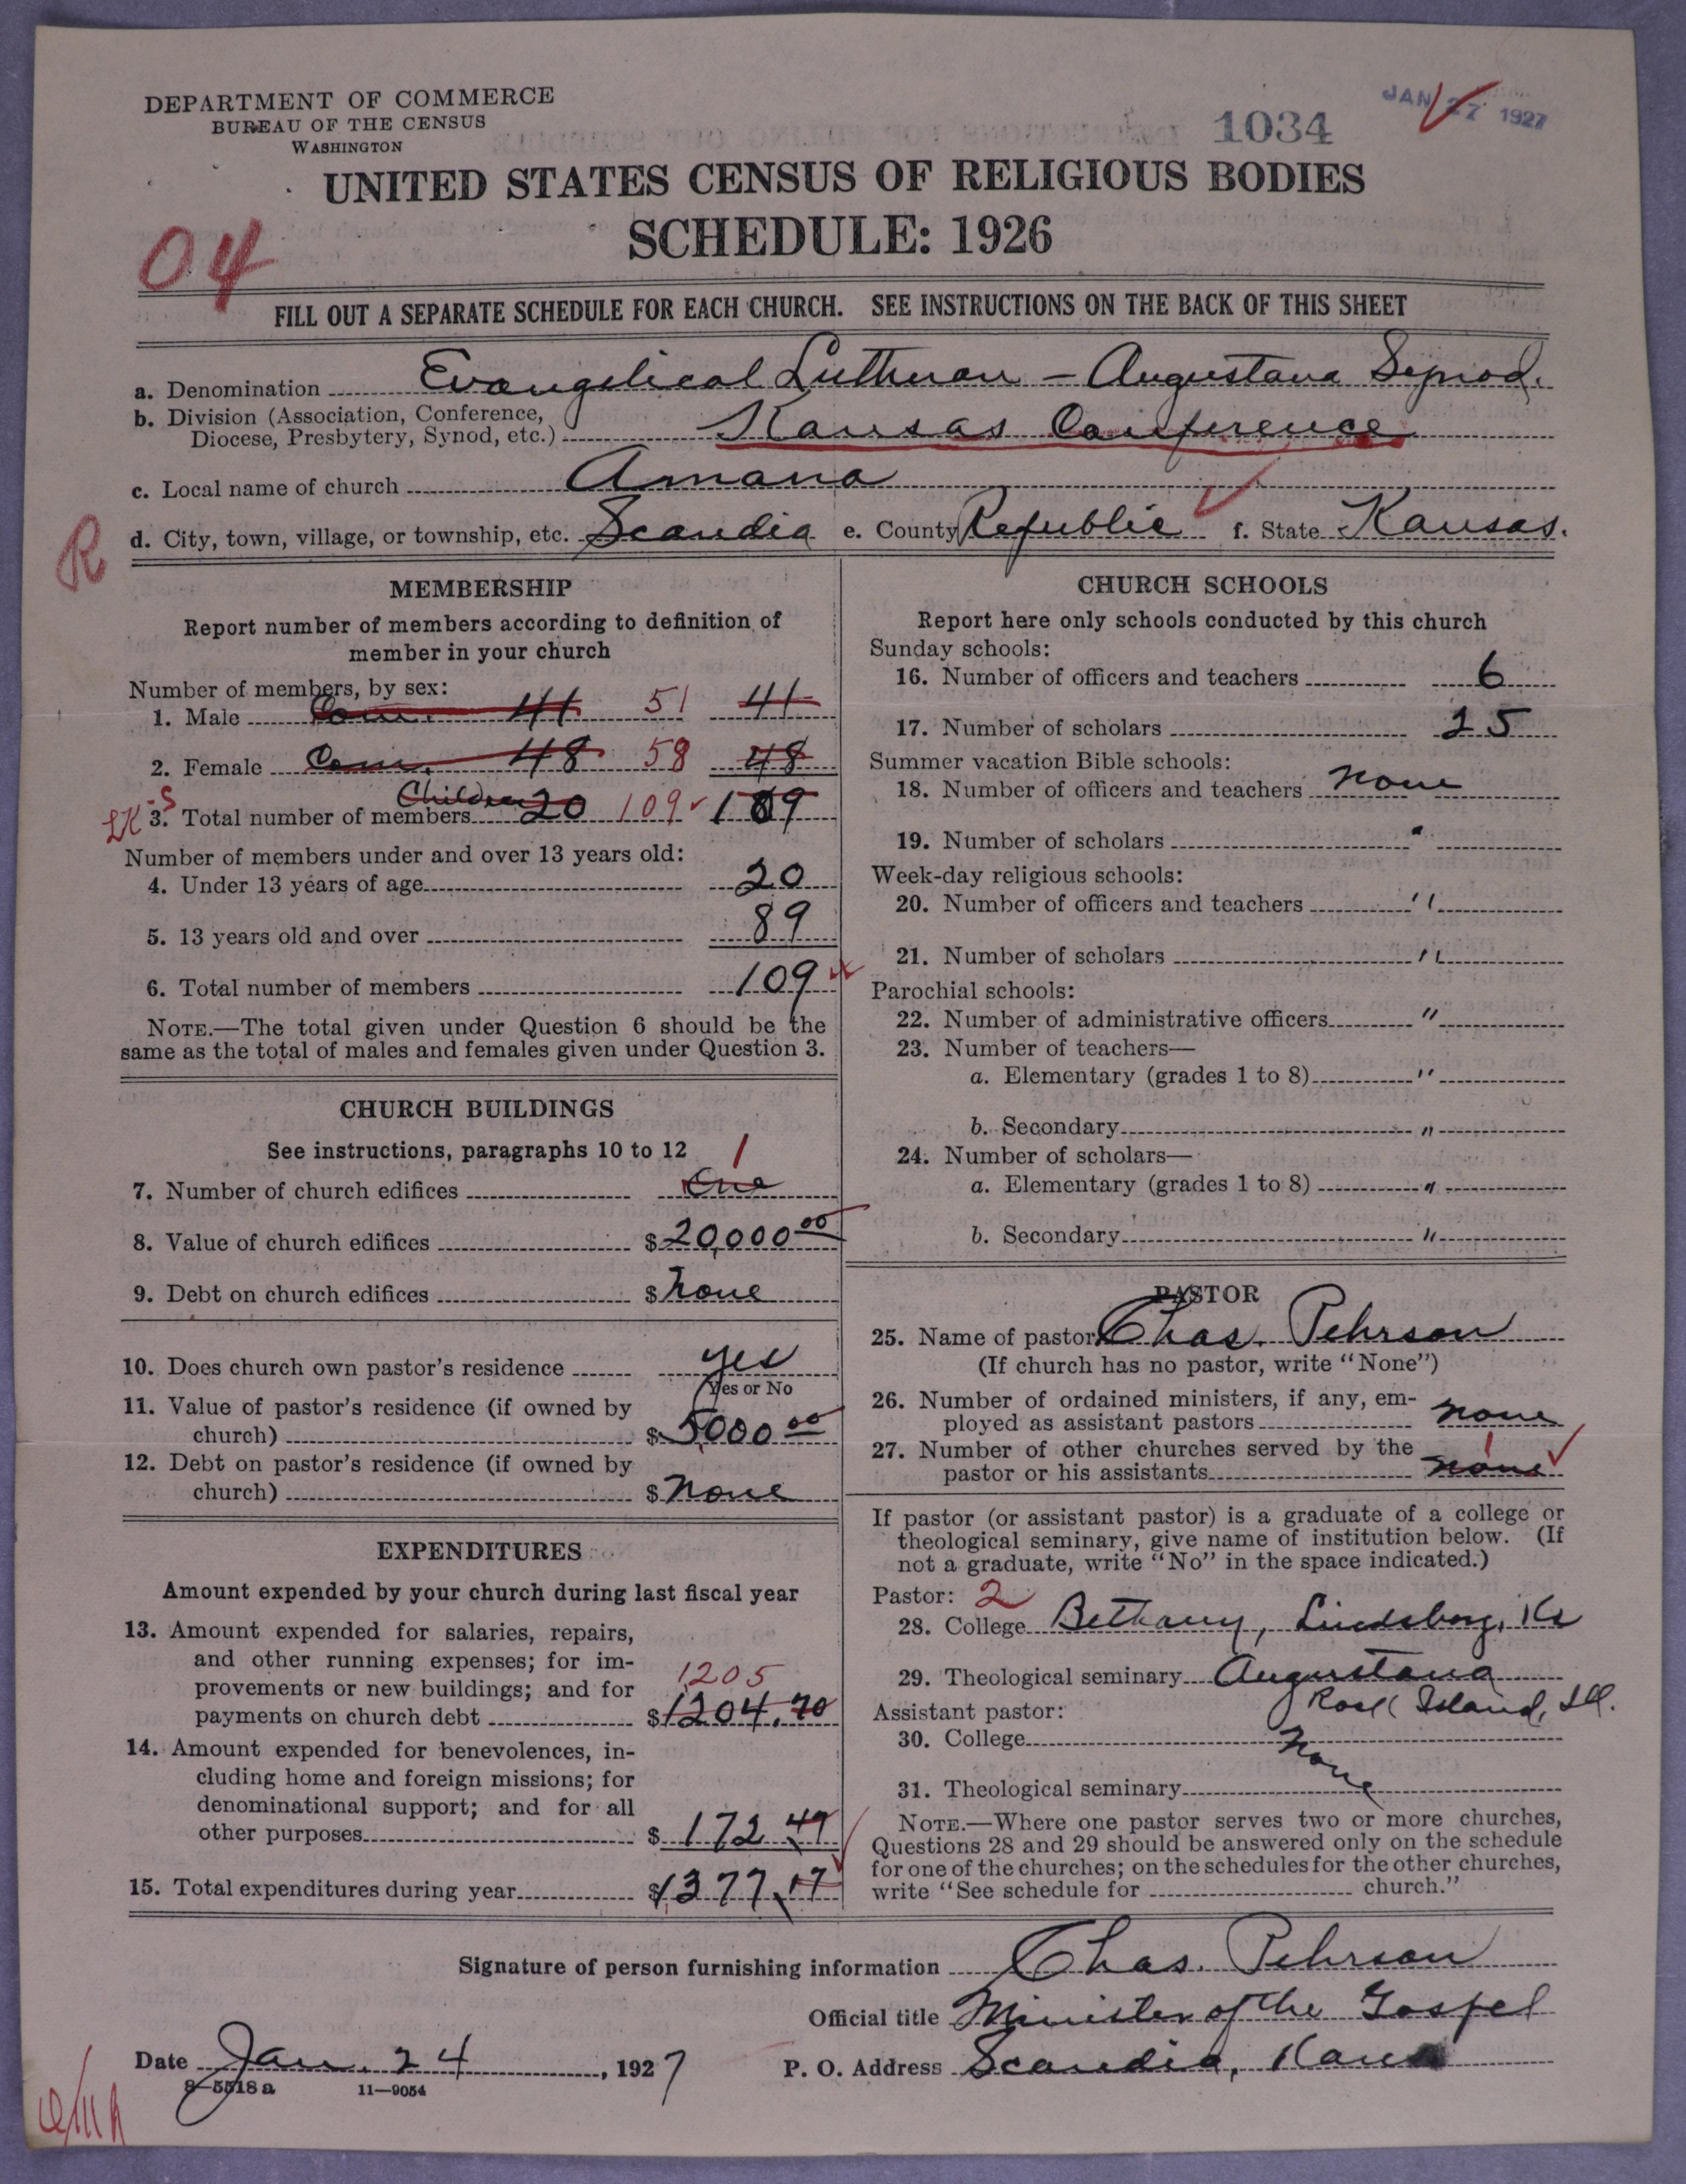 DEPARTMENT OF COMMERCE
BUREAU OF THE CENSUS
WASHINGTON
1034
JAN 27 1927
UNITED STATES CENSUS OF RELIGIOUS BODIES
SCHEDULE: 1926
04
FILL OUT A SEPARATE SCHEDULE FOR EACH CHURCH. SEE INSTRUCTIONS ON THE BACK OF THIS SHEET
a. Denomination Evangelical Lutheran – Augustana Synod.
b. Division (Association, Conference,
Diocese, Presbytery, Synod, etc.) Kansas Conference
c. Local name of church Amana
R
d. City, town, village, or township, etc. Scandia e. County Republic f. State Kansas.
MEMBERSHIP
Report number of members according to definition of
member in your church
Number of members, by sex:
1. Male Com. 41 51 41
2. Female Com. 48 58 48
3. Total number of members Children 20 109 109
Number of members under and over 13 years old:
4. Under 13 years of age 20
5. 13 years old and over 89
6. Total number of members 109
NOTE.—The total given under Question 6 should be the
same as the total of males and females given under Question 3.
CHURCH BUILDINGS
See instructions, paragraphs 10 to 12
1
7. Number of church edifices One
8. Value of church edifices $20,000 00
9. Debt on church edifices $ None
10. Does church own pastor's residence yes
Yes or No
11. Value of pastor's residence (if owned by
church) $ 5000 00
12. Debt on pastor's residence (if owned by
church) $ None
EXPENDITURES
Amount expended by your church during last fiscal year
13. Amount expended for salaries, repairs,
and other running expenses; for im-
provements or new buildings; and for 1205
payments on church debt $1204.70
14. Amount expended for benevolences, in-
cluding home and foreign missions; for
denominational support; and for all
other purposes $ 172 47
15. Total expenditures during year $1377.17
CHURCH SCHOOLS
Report here only schools conducted by this church
Sunday schools:
16. Number of officers and teachers 6
17. Number of scholars 25
Summer vacation Bible schools:
18. Number of officers and teachers None
19. Number of scholars "
Week-day religious schools:
20. Number of officers and teachers "
21. Number of scholars "
Parochial schools:
22. Number of administrative officers "
23. Number of teachers—
a. Elementary (grades 1 to 8) "
b. Secondary "
24. Number of scholars—
a. Elementary (grades 1 to 8) "
b. Secondary "
PASTOR
25. Name of pastor Chas. Pehrson
(If church has no pastor, write "None")
26. Number of ordained ministers, if any, em-
ployed as assistant pastors None
27. Number of other churches served by the 1
pastor or his assistants None
If pastor (or assistant pastor) is a graduate of a college or
theological seminary, give name of institution below. (If
not a graduate, write "No" in the space indicated.)
Pastor: 2
28. College Bethany, Lindsborg, Ks
29. Theological seminary Augustana
Rock Island, Ill.
Assistant pastor:
30. College None
31. Theological seminary
NOTE.—Where one pastor serves two or more churches,
Questions 28 and 29 should be answered only on the schedule
for one of the churches; on the schedules for the other churches,
write "See schedule for church."
Signature of person furnishing information Chas. Pehrson
Official title Minister of the Gospel
Date Jan. 24, 1927 P. O. Address Scandia, Kans
8—5518 a 11—9054